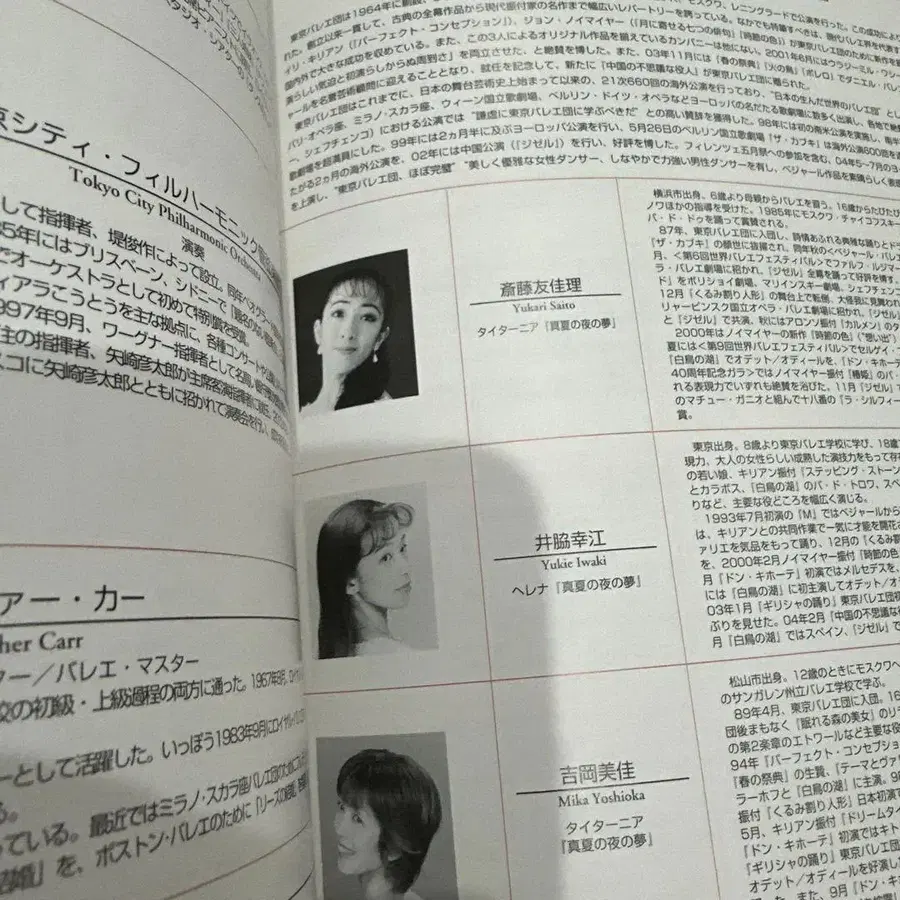 京シティ・フィルハーモニック管弦楽団
Tokyo City Philharmonic Orchestra
演奏
して指揮者、堤俊作によって設立。同年ベオグラ
85年にはブリスベーン、シドニーで
でオーケストラとして初めて特別賞を受賞。
ィアラこうとうを主な拠点に、各種コンサート
997年9月、ワーグナー指揮者として名高い
任の指揮者、矢崎彦太郎が主席客演指揮者に
スコに矢崎彦太郎とともに招かれて演奏会を行い
アー・カー
her Carr
ター／バレエ・マスター
校の初級・上級過程の両方に通った。1967年9月、ロイヤル
ーとして活躍した。いっぽう1983年9月にロイヤル・バレエ
る。
っている。最近ではミラノ・スカラ座バレエ団のために
婚」を、ボストン・バレエのために『リーズの結婚』
東京バレエ団は1964年に創設、
れた。創立以来一貫して、古典の全幕作品から現代振付家の名作まで幅広いレパートリーを誇っている。なかでも特筆すべきは、現代バレエ界を代表する
イリ・キリアン（『パーフェクト・コンセプション』）、ジョン・ノイマイヤー（『月に寄せる七つの俳句』『時節の色』）が東京バレエ団のために新作を
国内外で大きな成功を収めている。また、この3人によるオリジナル作品を揃えているカンパニーは他にない。2001年6月にはウラジーミル・ワシー
演らしい緊迫と初演らしからぬ周到さ"を両立させた、と絶賛を博した。また、03年11月には『春の祭典』『火の鳥』『ボレロ』でダニエル・バレ
ールを名誉芸術顧問に迎えることとなり、就任を記念して、新たに『中国の不思議な役人』が東京バレエ団に贈られた。
東京バレエ団はこれまでに、日本の舞台芸術史上始まって以来の、21次660回の海外公演を行っており、"日本の生んだ世界のバレエ団"として
パリ・オペラ座、ミラノ・スカラ座、ウィーン国立歌劇場、ベルリン・ドイツ・オペラなどヨーロッパの名だたる歌劇場に数多く出演し、各地で絶賛
、シェフチェンコ）における公演では"謙虚に東京バレエ団に学ぶべきだ"との高い賛辞を獲得した。98年には初の南米公演を実施し、南半
歌劇場を超満員にした。99年には2ヵ月半に及ぶヨーロッパ公演を行い、5月26日のベルリン国立歌劇場『ザ・カブキ』は海外公演500回を
たがる2ヵ月の海外公演を、02年には中国公演（『ジゼル』）を行い、好評を博した。フィレンツェ五月祭への参加を含む、04年5〜7月のヨー
を上演し、"東京バレエ団、ほぼ完璧""美しく優雅な女性ダンサー、しなやかで力強い男性ダンサーを有し、ベジャール作品を素晴らしく
斎藤友佳理
Yukari Saito
タイターニア『真夏の夜の夢』
横浜市出身。6歳より母親からバレエを習う。16歳からたびたび
ノワほかの指導を受けた。1985年にモスクワ・チャイコフスキー
パ・ド・ドゥを踊って賞賛される。
87年、東京バレエ団に入団し、詩情あふれる典雅な踊りとドラ
『ザ・カブキ』の顔世に抜擢され、同年秋の＜ベジャール・バレエ
月、＜第6回世界バレエフェスティバル＞でファルフ・ルジマー
ラ・バレエ劇場に招かれ、『ジゼル』全幕を踊って好評を博す。
ド』をボリショイ劇場、マリインスキー劇場、シェフチェンコ
12月『くるみ割り人形』の舞台上で転倒、大怪我に見舞われ
リャービンスク国立オペラ・バレエ劇場に招かれ、『ジゼル』
と『ジゼル』で共演、秋にはアロンソ振付『カルメン』のタ
2000年はノイマイヤーの新作『時節の色』（"想い出"）
夏には＜第9回世界バレエフェスティバル＞でセルゲイ・フ
『白鳥の湖』でオデット／オディールを、『ドン・キホーテ
40周年記念ガラ＞ではノイマイヤー振付『椿姫』のパ・
れる表現力でいずれも絶賛を浴びた。11月『ジゼル』で
のマチュー・ガニオと組んで十八番の『ラ・シルフィー
賞。
井脇幸江
Yukie Iwaki
ヘレナ『真夏の夜の夢』
東京出身。8歳より東京バレエ学校に学び、18歳
現力、大人の女性らしい成熟した演技力をもって存在
の若い娘、キリアン振付『ステッピング・ストーン
とカラボス、『白鳥の湖』のパ・ド・トロワ、スペイ
りなど、主要な役どころを幅広く演じる。
1993年7月初演の『M』ではベジャールから
は、キリアンとの共同作業で一気に才能を開花さ
ァリエを気品をもって踊り、12月の『くるみ割
を、2000年2月ノイマイヤー振付『時節の色
月『ドン・キホーテ』初演ではメルセデスを、
には『白鳥の湖』に初主演してオデット／オデ
03年1月『ギリシャの踊り』東京バレエ団初
ぶりを見せた。04年2月『中国の不思議な役
月『白鳥の湖』ではスペイン、『ジゼル』で
吉岡美佳
Mika Yoshioka
タイターニア
『真夏の夜の夢』
松山市出身。12歳のときにモスクワへ
のサンガレン州立バレエ学校で学ぶ。
89年4月、東京バレエ団に入団。16
団後まもなく『眠れる森の美女』のリラ
の第2楽章のエトワールなど主要な役
94年『パーフェクト・コンセプション
『春の祭典』の生贄、『テーマとヴァ
ラーホフと『白鳥の湖』に主演。98
振付『くるみ割り人形』日本初演で
5月、キリアン振付『ドリームタイ
『ドン・キホーテ』初演ではキト
『ギリシャの踊り』東京バレエ団
オデット／オディールを好演し
た。また、9月『ドン・キ